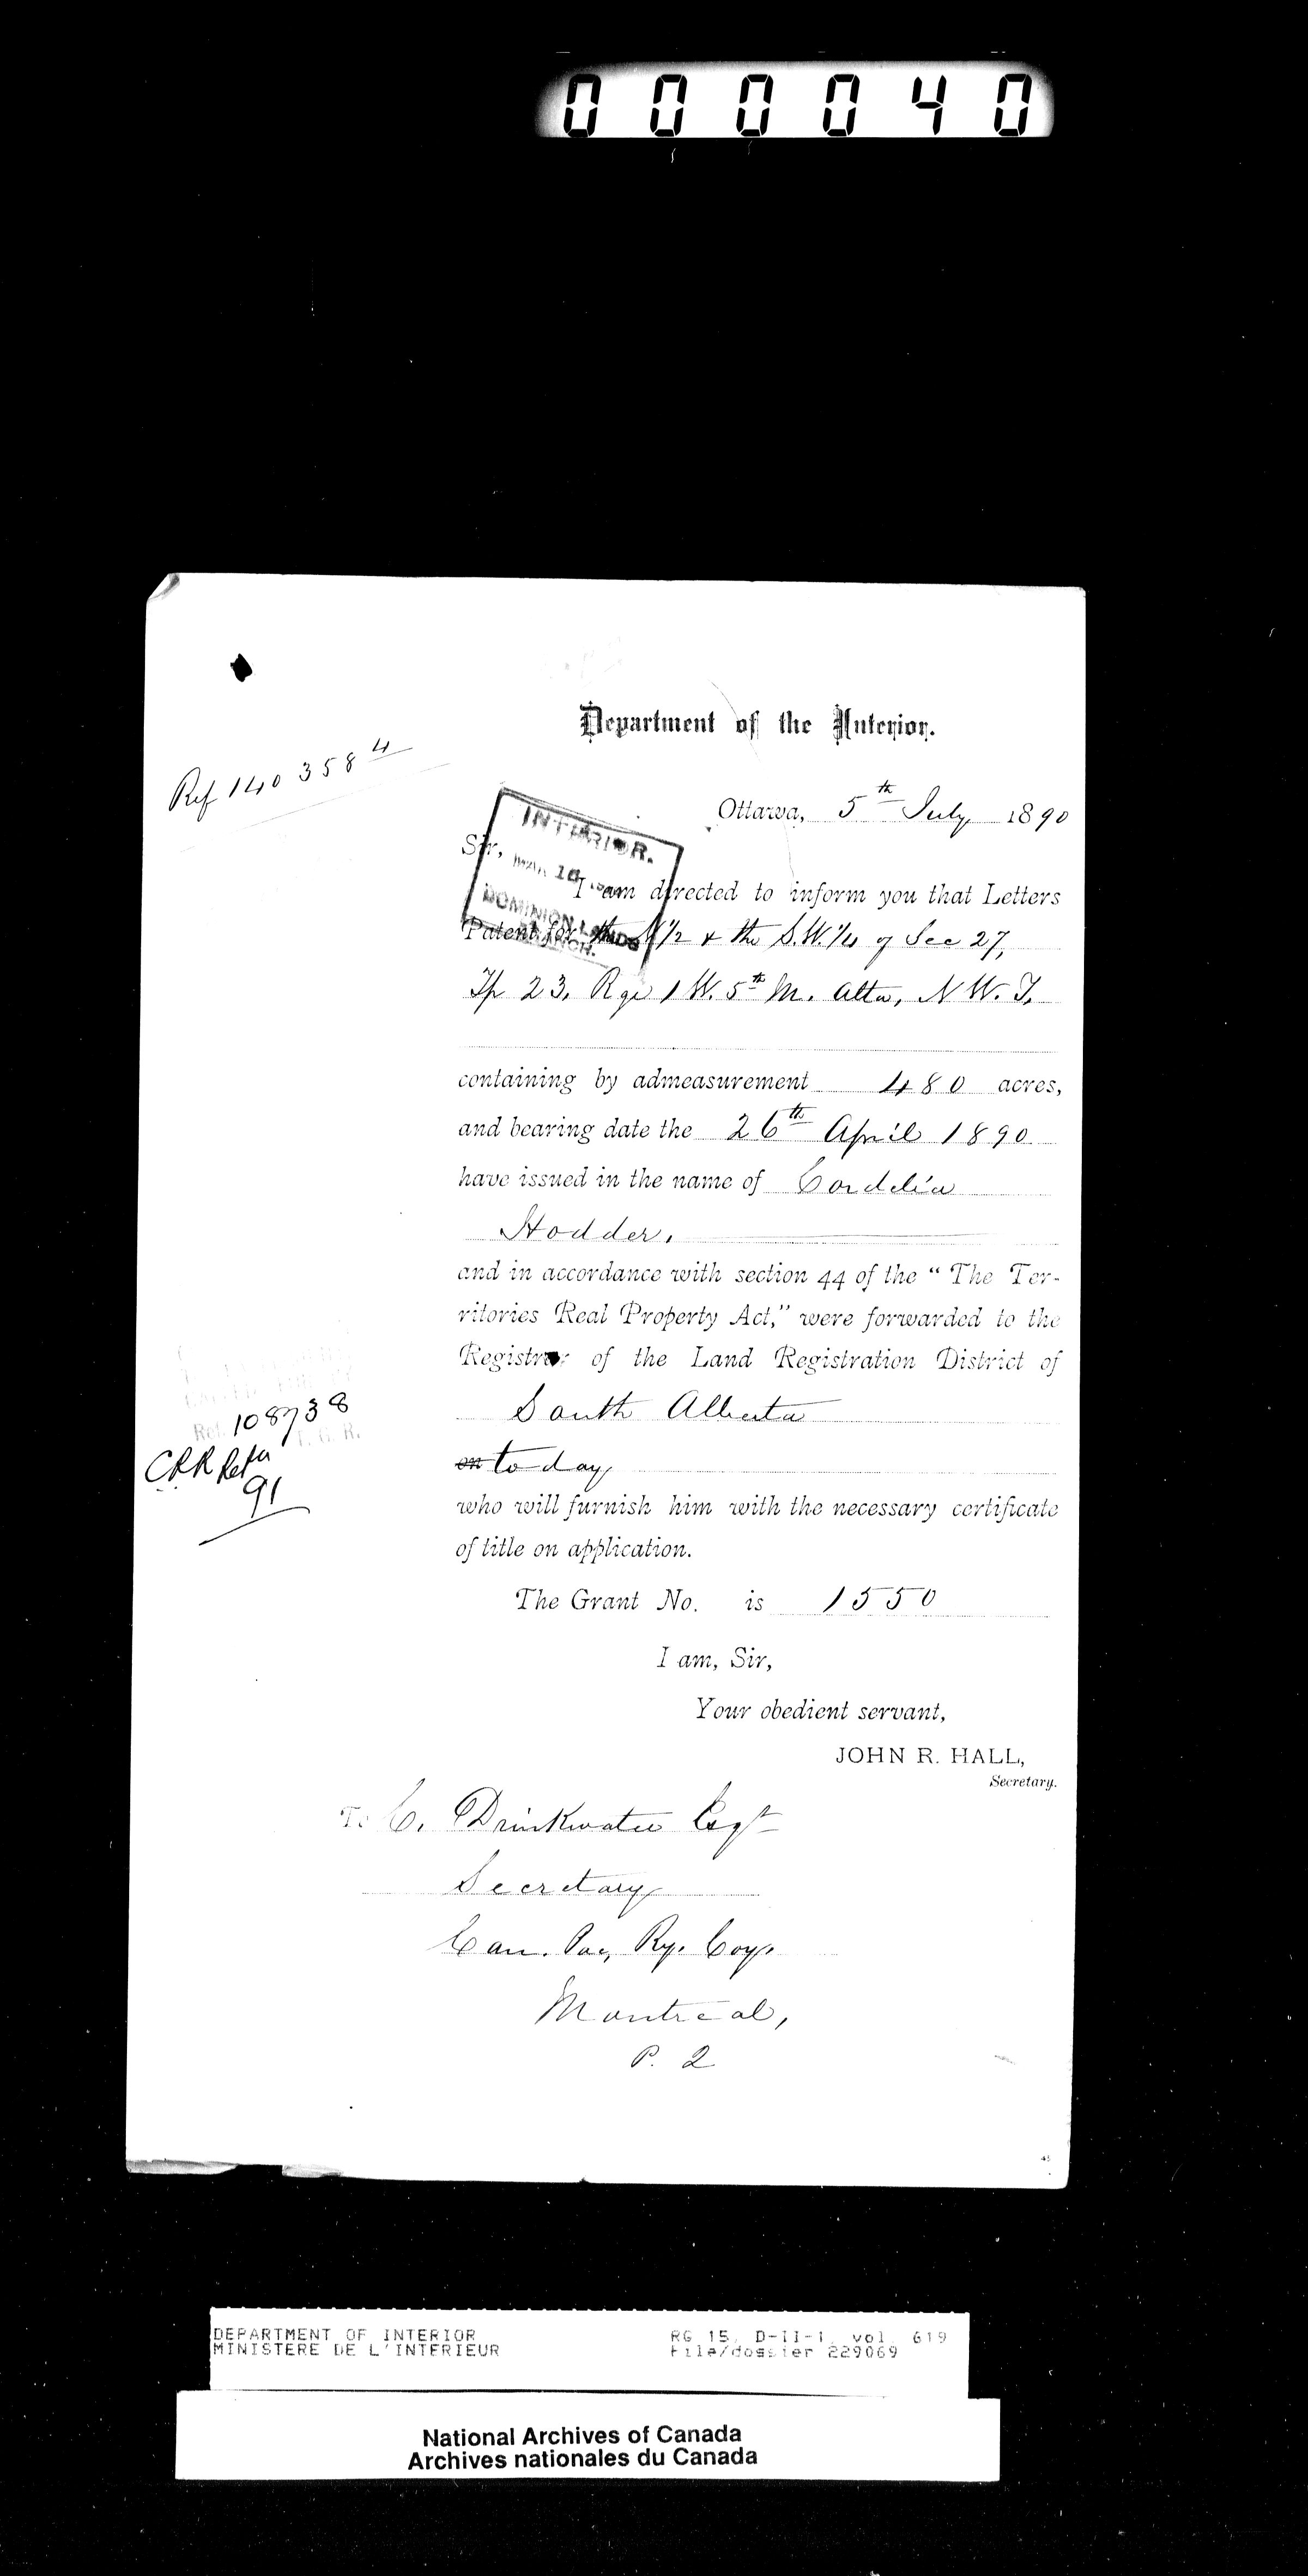 000040
Department of the Interior.
Ref 140 358 4
Ottawa, 5th July 1890
INTERIOR.
DOMINION LANDS
BRANCH.
Sir,
I am directed to inform you that Letters
Patent for the N 1/2 & the S.W. 1/4 of Sec 27,
Tp 23, Rge 1 W. 5th M. Alta, N W. T.
containing by admeasurement 480 acres,
and bearing date the 26th April 1890
have issued in the name of Cordelia
Hodder,
and in accordance with section 44 of the "The Ter-
ritories Real Property Act," were forwarded to the
Registrar of the Land Registration District of
South Alberta
on to day
who will furnish him with the necessary certificate
of title on application.
Ref. 108738
91
The Grant No. is 1550
I am, Sir,
Your obedient servant,
JOHN R. HALL,
Secretary.
To C. Drinkwater Esqr
Secretary
Can. Pac, Ry. Coy.
Montreal,
P. Q
DEPARTMENT OF INTERIOR
MINISTERE DE L'INTERIEUR
RG 15, D-II-1, vol. 619
File/dossier 229069
National Archives of Canada
Archives nationales du Canada